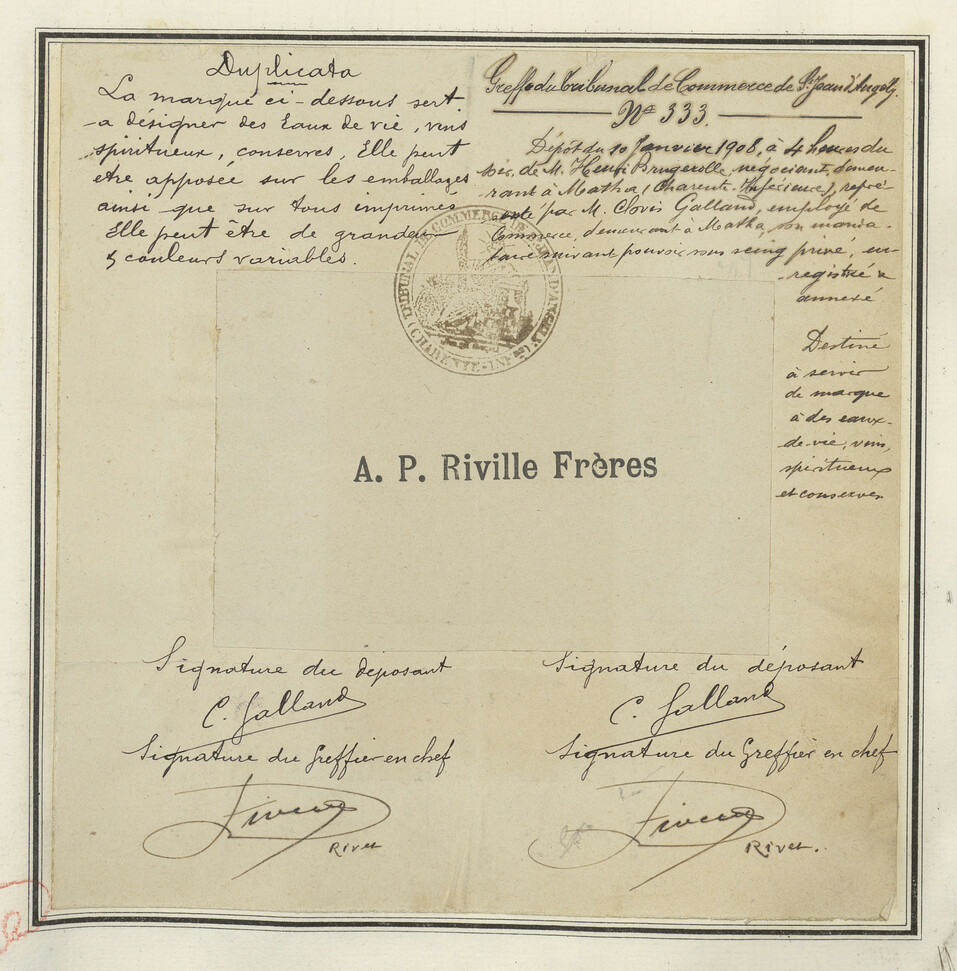 Duplicata
La marque ci-dessous sert
a désigner des Eaux de vie, vins
spiritueux, conserves, Elle peut
etre apposée sur les emballages
ainsi que sur tous imprimés
Elle peut être de grandeur
& couleurs variables.
Greffe du Tribunal de Commerce de St Jean d'Angély.
N° 333.
Dépôt du 10 Janvier 1908, à 4 heures du
soir, de M. Henri Brugerolle, négociant, demeu-
rant à Matha (Charente-Inférieure), repré
senté par M. Clovis Galland, employé de
Commerce, demeurant à Matha, son manda-
taire suivant pouvoir sous seing privé, en-
registré &
annexé
Destiné
à servir
de marque
à des eaux-
de-vie, vins,
spiritueux
et conserves
TRIBUNAL DE COMMERCE DE ST JEAN D'ANGELY
(CHARENTE-INFre)
A. P. Riville Frères
Signature du déposant
C. Galland
Signature du Greffier en chef
Rivet
Signature du déposant
C. Galland
Signature du Greffier en chef
Rivet.